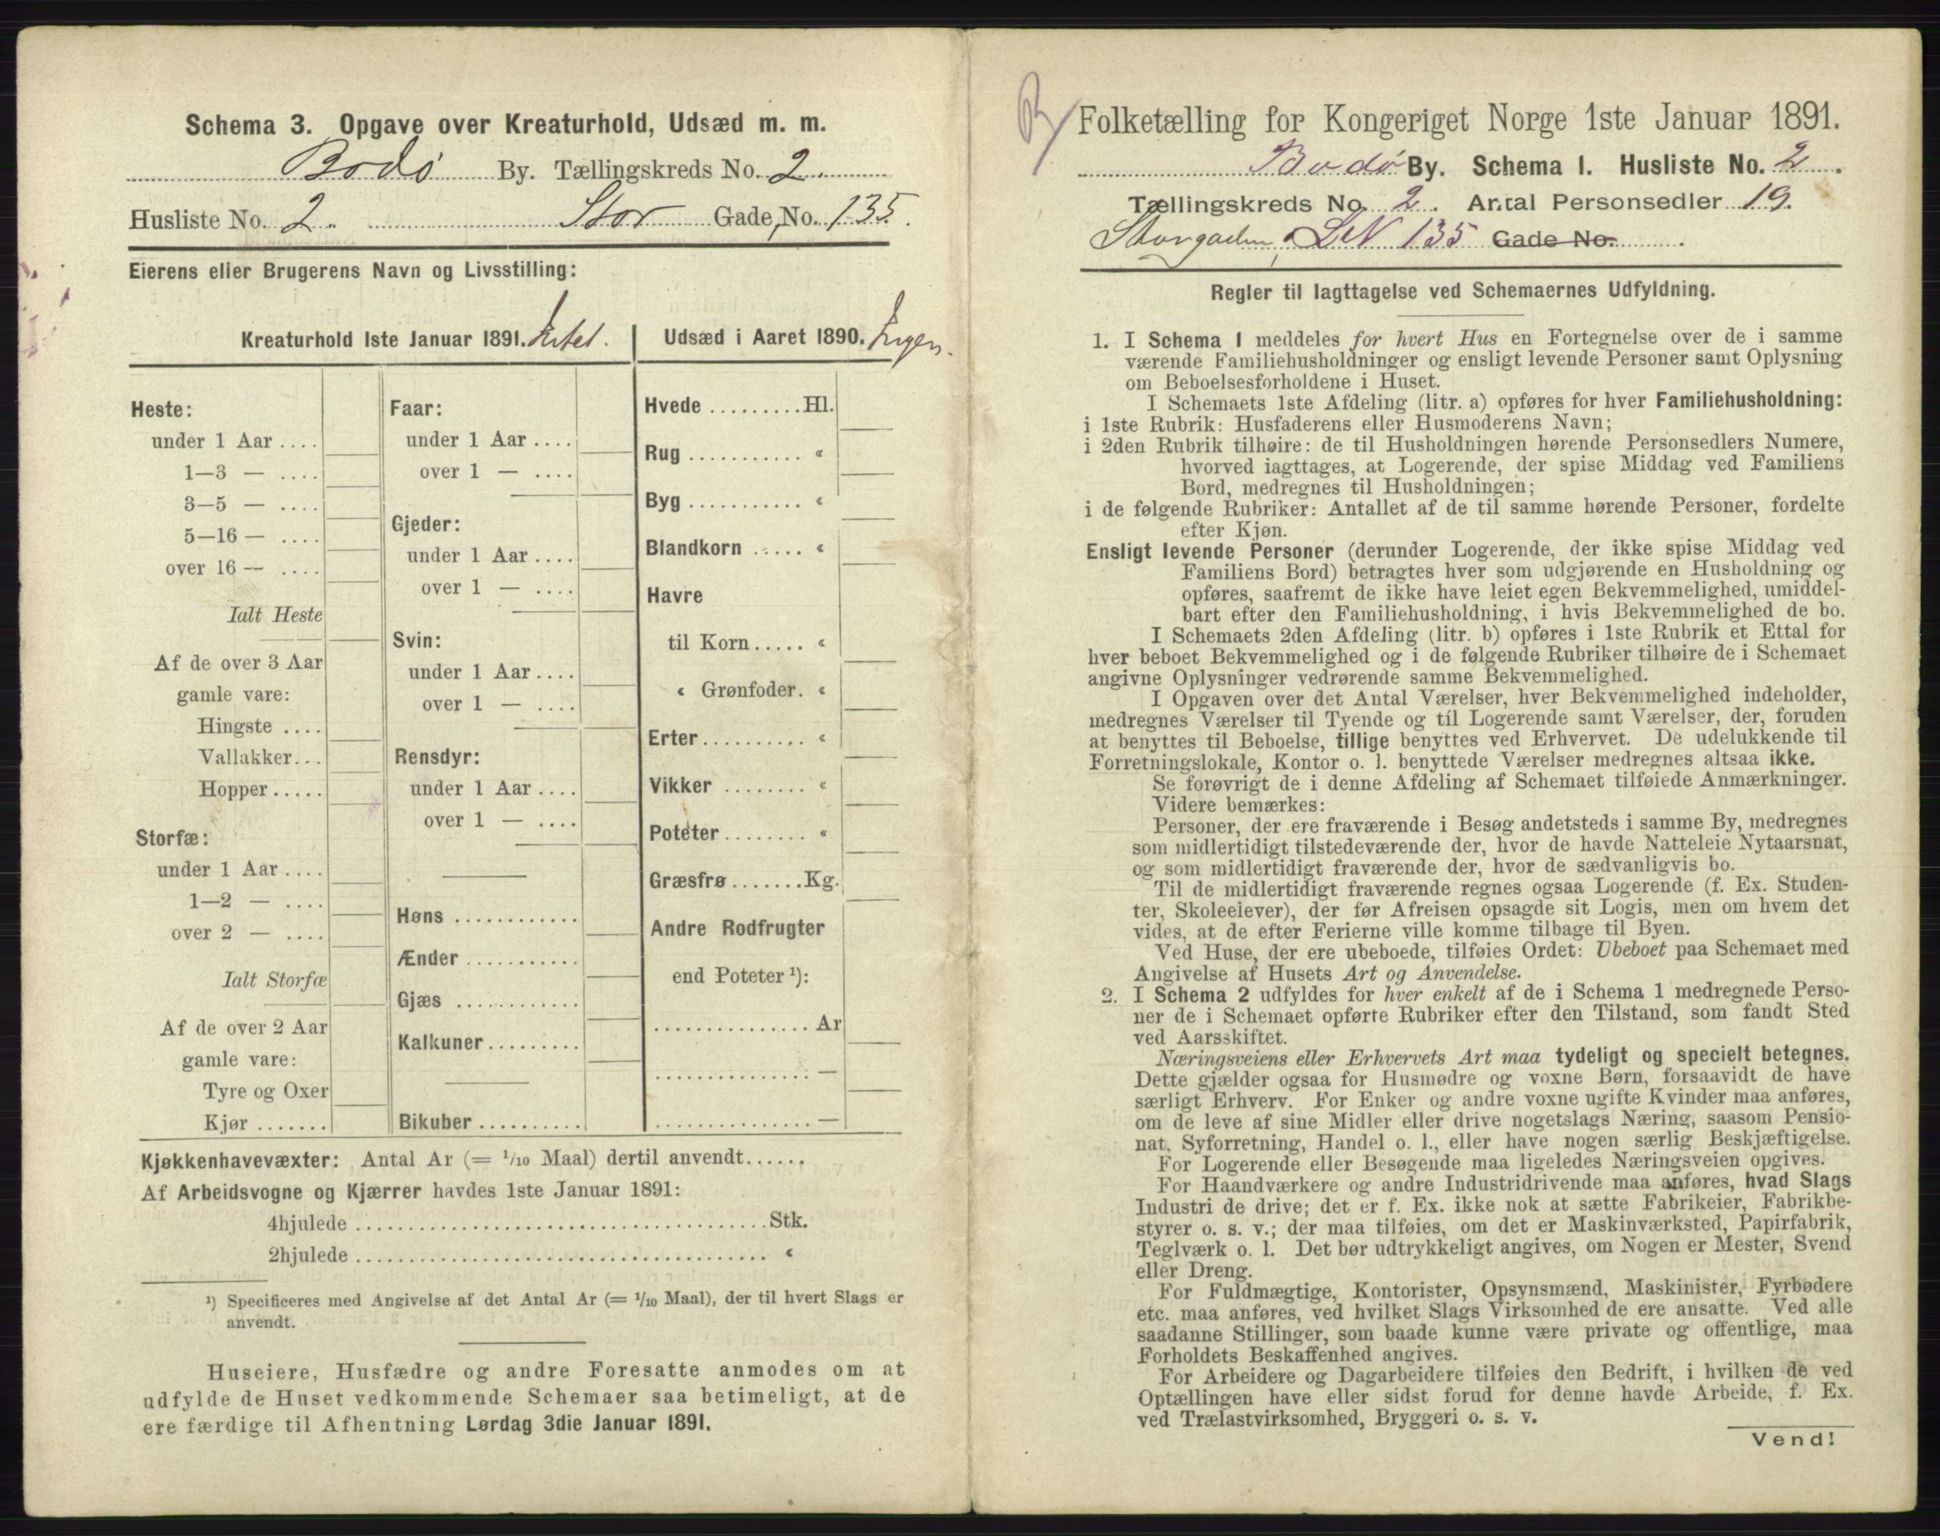 Schema 3. Opgave over Kreaturhold, Udsæd m. m.
Bodø By. Tællingskreds No. 2.
Husliste No. 2. Stor Gade, No. 135.
Eierens eller Brugerens Navn og Livsstilling:
Kreaturhold 1ste Januar 1891. Intet.
Heste:
under 1 Aar ....
1—3 — ....
3—5 — ....
5—16 — ....
over 16 — ....
Ialt Heste
Af de over 3 Aar
gamle vare:
Hingste ....
Vallakker...
Hopper .....
Storfæ:
under 1 Aar ....
1—2 — ....
over 2 — ....
Ialt Storfæ
Af de over 2 Aar
gamle vare:
Tyre og Oxer
Kjør .......
Faar:
under 1 Aar ....
over 1 — ....
Gjeder:
under 1 Aar ....
over 1 — ....
Svin:
under 1 Aar ....
over 1 — ....
Rensdyr:
under 1 Aar ....
over 1 — ....
Høns ...........
Ænder ...........
Gjæs ...........
Kalkuner .........
Bikuber ..........
Udsæd i Aaret 1890. Ingen.
Hvede .........Hl.
Rug ........... «
Byg ........... «
Blandkorn ..... «
Havre
til Korn ..... «
« Grønfoder. «
Erter .......... «
Vikker ........ «
Poteter ........ «
Græsfrø .......Kg.
Andre Rodfrugter
end Poteter ¹):
............... Ar
............... —
............... —
Kjøkkenhavevæxter: Antal Ar (= 1/10 Maal) dertil anvendt......
Af Arbeidsvogne og Kjærrer havdes 1ste Januar 1891:
4hjulede ........................................Stk.
2hjulede ........................................ «
¹) Specificeres med Angivelse af det Antal Ar (= 1/10 Maal), der til hvert Slags er
anvendt.
Huseiere, Husfædre og andre Foresatte anmodes om at
udfylde de Huset vedkommende Schemaer saa betimeligt, at de
ere færdige til Afhentning Lørdag 3die Januar 1891.
Folketælling for Kongeriget Norge 1ste Januar 1891.
Bodø By. Schema 1. Husliste No. 2.
Tællingskreds No. 2. Antal Personsedler 19.
Storgaden, LN 135 Gade No.
Regler til Iagttagelse ved Schemaernes Udfyldning.
1. I Schema 1 meddeles for hvert Hus en Fortegnelse over de i samme
værende Familiehusholdninger og ensligt levende Personer samt Oplysning
om Beboelsesforholdene i Huset.
I Schemaets 1ste Afdeling (litr. a) opføres for hver Familiehusholdning:
i 1ste Rubrik: Husfaderens eller Husmoderens Navn;
i 2den Rubrik tilhøire: de til Husholdningen hørende Personsedlers Numere,
hvorved iagttages, at Logerende, der spise Middag ved Familiens
Bord, medregnes til Husholdningen;
i de følgende Rubriker: Antallet af de til samme hørende Personer, fordelte
efter Kjøn.
Ensligt levende Personer (derunder Logerende, der ikke spise Middag ved
Familiens Bord) betragtes hver som udgjørende en Husholdning og
opføres, saafremt de ikke have leiet egen Bekvemmelighed, umiddel-
bart efter den Familiehusholdning, i hvis Bekvemmelighed de bo.
I Schemaets 2den Afdeling (litr. b) opføres i 1ste Rubrik et Ettal for
hver beboet Bekvemmelighed og i de følgende Rubriker tilhøire de i Schemaet
angivne Oplysninger vedrørende samme Bekvemmelighed.
I Opgaven over det Antal Værelser, hver Bekvemmelighed indeholder,
medregnes Værelser til Tyende og til Logerende samt Værelser, der, foruden
at benyttes til Beboelse, tillige benyttes ved Erhvervet. De udelukkende til
Forretningslokale, Kontor o. l. benyttede Værelser medregnes altsaa ikke.
Se forøvrigt de i denne Afdeling af Schemaet tilføiede Anmærkninger.
Videre bemærkes:
Personer, der ere fraværende i Besøg andetsteds i samme By, medregnes
som midlertidigt tilstedeværende der, hvor de havde Natteleie Nytaarsnat,
og som midlertidigt fraværende der, hvor de sædvanligvis bo.
Til de midlertidigt fraværende regnes ogsaa Logerende (f. Ex. Studen-
ter, Skoleelever), der før Afreisen opsagde sit Logis, men om hvem det
vides, at de efter Ferierne ville komme tilbage til Byen.
Ved Huse, der ere ubeboede, tilføies Ordet: Ubeboet paa Schemaet med
Angivelse af Husets Art og Anvendelse.
2. I Schema 2 udfyldes for hver enkelt af de i Schema 1 medregnede Perso-
ner de i Schemaet opførte Rubriker efter den Tilstand, som fandt Sted
ved Aarsskiftet.
Næringsveiens eller Erhvervets Art maa tydeligt og specielt betegnes.
Dette gjælder ogsaa for Husmødre og voxne Børn, forsaavidt de have
særligt Erhverv. For Enker og andre voxne ugifte Kvinder maa anføres,
om de leve af sine Midler eller drive nogetslags Næring, saasom Pensio-
nat, Syforretning, Handel o. l., eller have nogen særlig Beskjæftigelse.
For Logerende eller Besøgende maa ligeledes Næringsveien opgives.
For Haandværkere og andre Industridrivende maa anføres, hvad Slags
Industri de drive; det er f. Ex. ikke nok at sætte Fabrikeier, Fabrikbe-
styrer o. s. v.; der maa tilføies, om det er Maskinværksted, Papirfabrik,
Teglværk o. l. Det bør udtrykkeligt angives, om Nogen er Mester, Svend
eller Dreng.
For Fuldmægtige, Kontorister, Opsynsmænd, Maskinister, Fyrbødere
etc. maa anføres, ved hvilket Slags Virksomhed de ere ansatte. Ved alle
saadanne Stillinger, som baade kunne være private og offentlige, maa
Forholdets Beskaffenhed angives.
For Arbeidere og Dagarbeidere tilføies den Bedrift, i hvilken de ved
Optællingen have eller sidst forud for denne havde Arbeide, f. Ex.
ved Trælastvirksomhed, Bryggeri o. s. v.
Vend!